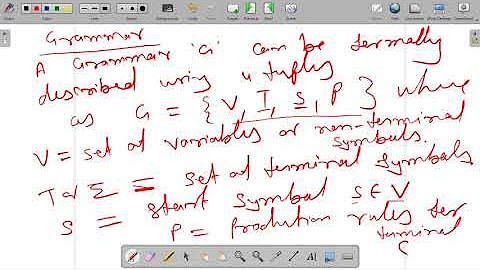 Grammar
A Grammar 'G' can be formally
described using 4 tuples
as G = { V, T, S, P } where
V = set of variables or non-terminal
symbols.
T or Σ = set of terminal symbols
S = start symbol S ∈ V
P = Production rules for
terminal